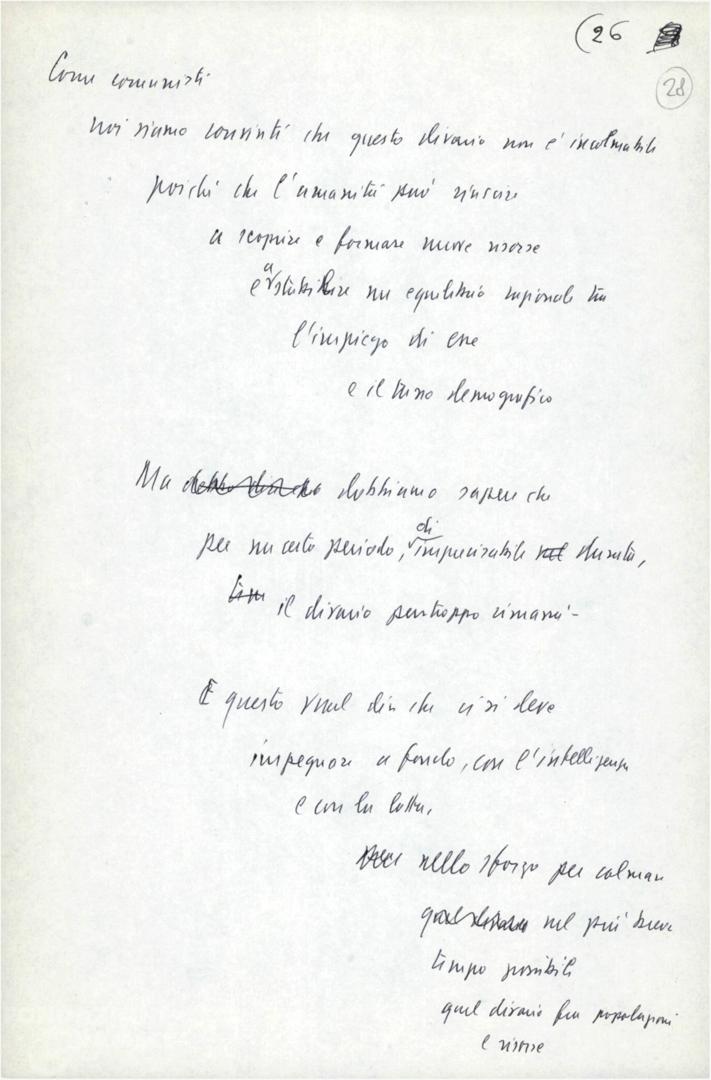 (26
28
Come comunisti
noi siamo convinti che questo divario non è incolmabile
poiché che l'umanità può riuscire
a scoprire e formare nuove risorse
e a stabilire un equilibrio razionale tra
l'impiego di esse
e il tasso demografico
Ma dobbiamo sapere che
per un certo periodo, di imprecisabile durata,
il divario purtroppo rimarrà -
E questo vuol dire che ci si deve
impegnare a fondo, con l'intelligenza
e con la lotta,
nello sforzo per colmare
nel più breve
tempo possibile
quel divario fra popolazioni
e risorse